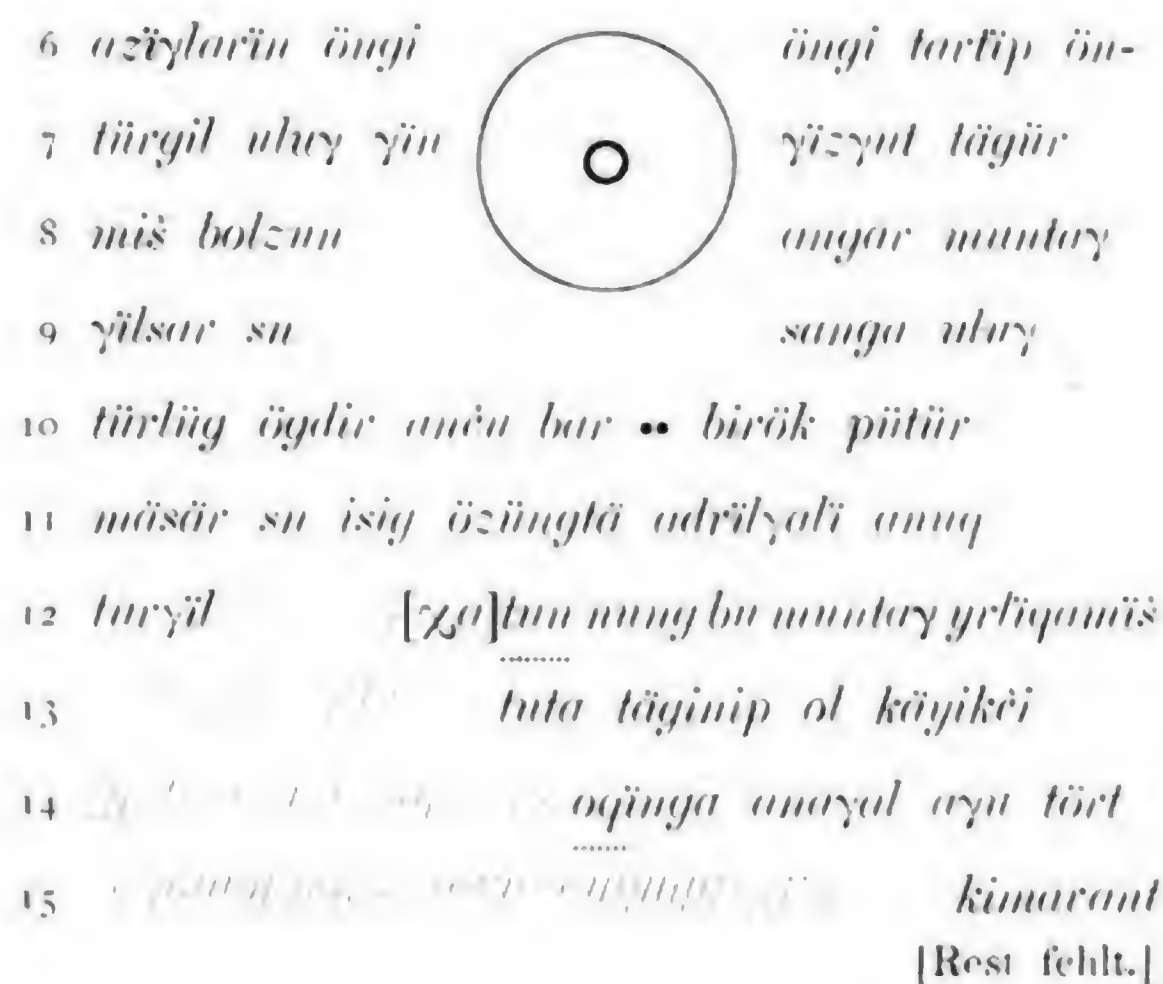 6 azïγlarïn öngi öngi tartïp ön-
7 türgil uluγ γïn γïzγut tägür
8 miš bolzun angar muntaγ
9 γïlsar sn sanga uluγ
10 türlüg ögdir anču bar •• birök pütür
11 mäsär sn isig özüngtä adrïlγalï anuq
12 turγïl [χa]tun nung bu muntaγ yrlïqamïš
13 tuta täginip ol käyikči
14 oqïnga anayal aγu tört
15 kimarant
[Rest fehlt.]